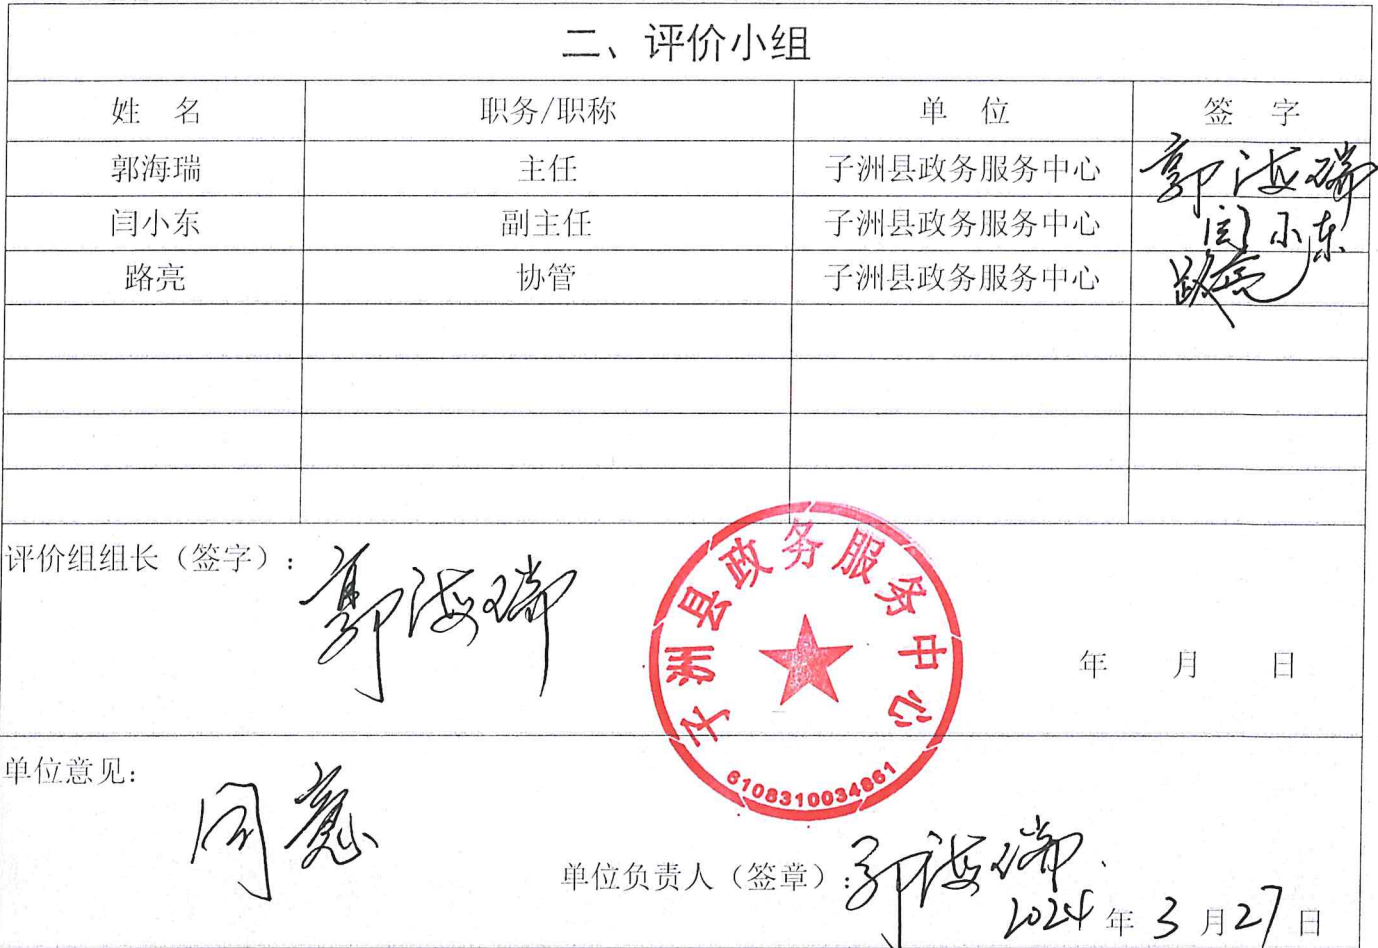 二、评价小组
姓 名 职务/职称 单 位 签 字
郭海瑞 主任 子洲县政务服务中心 郭海瑞
闫小东 副主任 子洲县政务服务中心 闫小东
路亮 协管 子洲县政务服务中心 路亮
评价组组长（签字）： 郭海瑞
子洲县政务服务中心
年 月 日
6108310034861
单位意见：
同意
单位负责人（签章）： 郭海瑞
2024 年 3 月 27 日